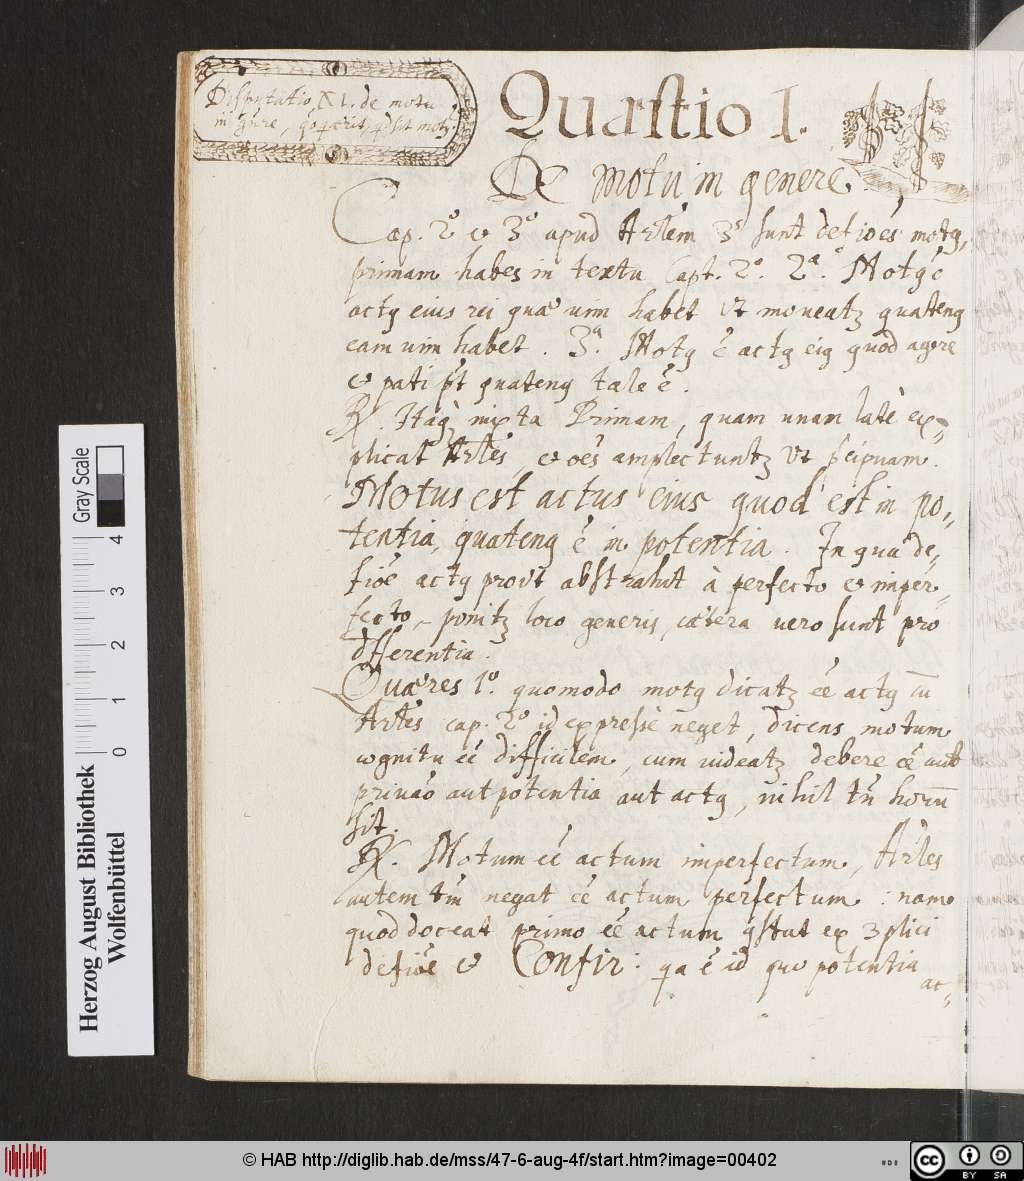 Disputatio XI. de motu
in gñre,
Quæstio I.
De motu in genere.
Cap. 2º et 3º apud Arlẽm 3s sunt defiões motꝰ,
primam habes in textu Capt. 2º. 2ª. Motꝰ ẽ
actꝰ eius rei quæ vim habet ut moveatꝫ quatenꝰ
eam vim habet. 3ª. Motꝰ ẽ actꝰ eiꝰ quod agere
et pati pt quatenꝰ tale ẽ.
℞. Itaq iuxta Primam, quam unam latè ex=
plicat Arles et oẽs amplectuntꝫ ut
Motus est actus eius quod est in po=
tentia, quatenꝰ ẽ in potentia. In qua de=
fiõe actꝰ provt abstrahit à perfecto et imper=
fecto, ponitꝫ loco generis, cætera vero sunt pro
differentia.
Quæres 1º. quomodo motꝰ dicatꝫ ẽẽ actꝰ cũ
Arles cap. 2º id expressè neget, dicens motum
cognitu ẽẽ difficilem, cum videatꝫ debere ẽẽ aut
privaõ aut potentia aut actꝰ, nihil tñ horũ
sit.
℞. Motum ẽẽ actum imperfectum, Arles
autem tm̃ negat ẽẽ actum perfectum: nam
quod doceat primo ẽẽ actum ꝯstat ex 3plici
defiõe et Confir: qa ẽ id quo potentia
ac=
Gray Scale
4
3
2
1
0
Herzog August Bibliothek
Wolfenbüttel
© HAB http://diglib.hab.de/mss/47-6-aug-4f/start.htm?image=00402
cc BY SA